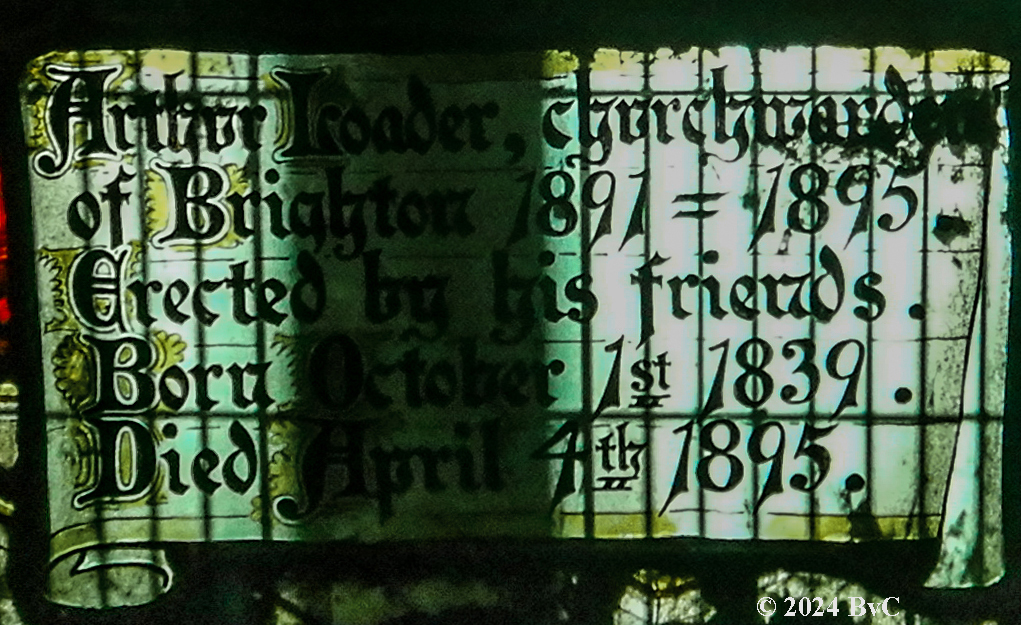 Arthur Loader, churchwarden
of Brighton 1891 = 1895.
Erected by his friends.
Born October 1st 1839.
Died April 4th 1895.
© 2024 BvC